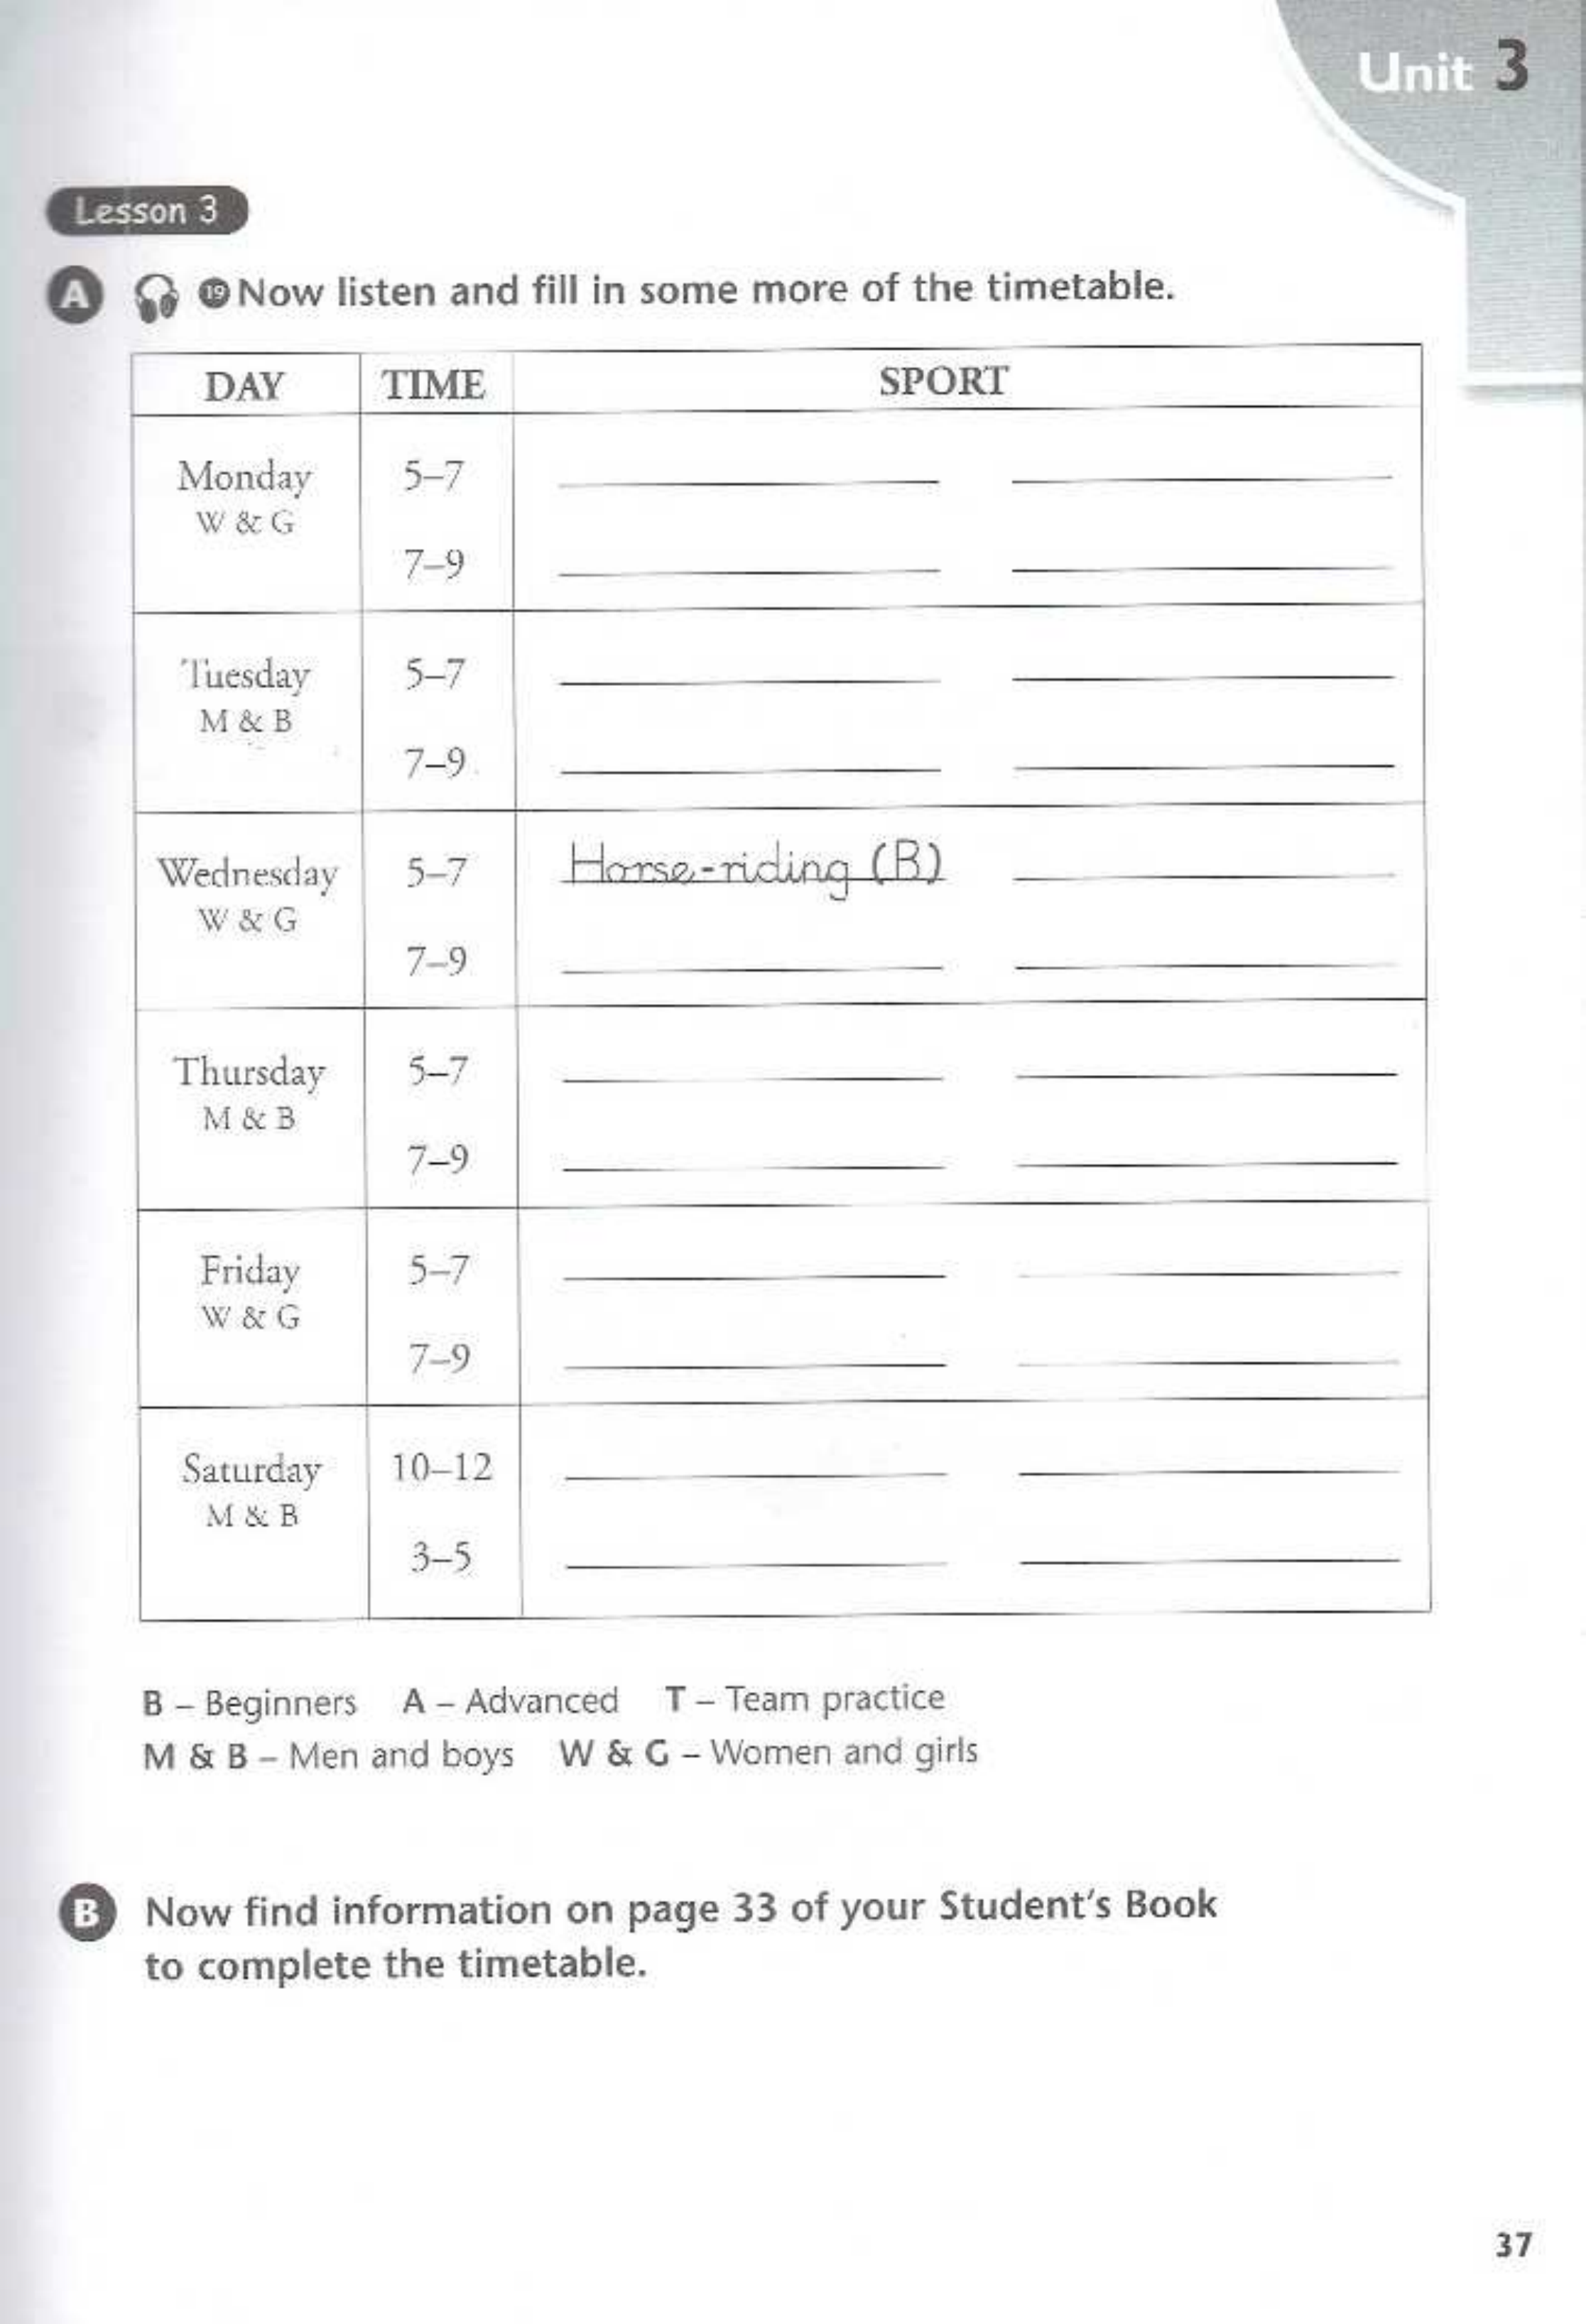 Unit 3
Lesson 3
A 19 Now listen and fill in some more of the timetable.
DAY TIME SPORT
Monday 5–7
W & G
7–9
Tuesday 5–7
M & B
7–9
Wednesday 5–7 Horse-riding (B)
W & G
7–9
Thursday 5–7
M & B
7–9
Friday 5–7
W & G
7–9
Saturday 10–12
M & B
3–5
B – Beginners A – Advanced T – Team practice
M & B – Men and boys W & G – Women and girls
B Now find information on page 33 of your Student's Book
to complete the timetable.
37